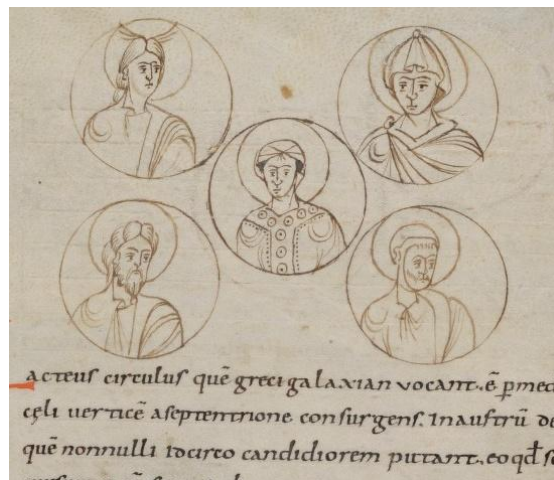 acteus circulus quē greci galaxian vocant. ē p̄ med
cęli uerticē a septentrione consurgens. In austrū de
quē nonnulli idcirco candidiorem putant. eo qđ so